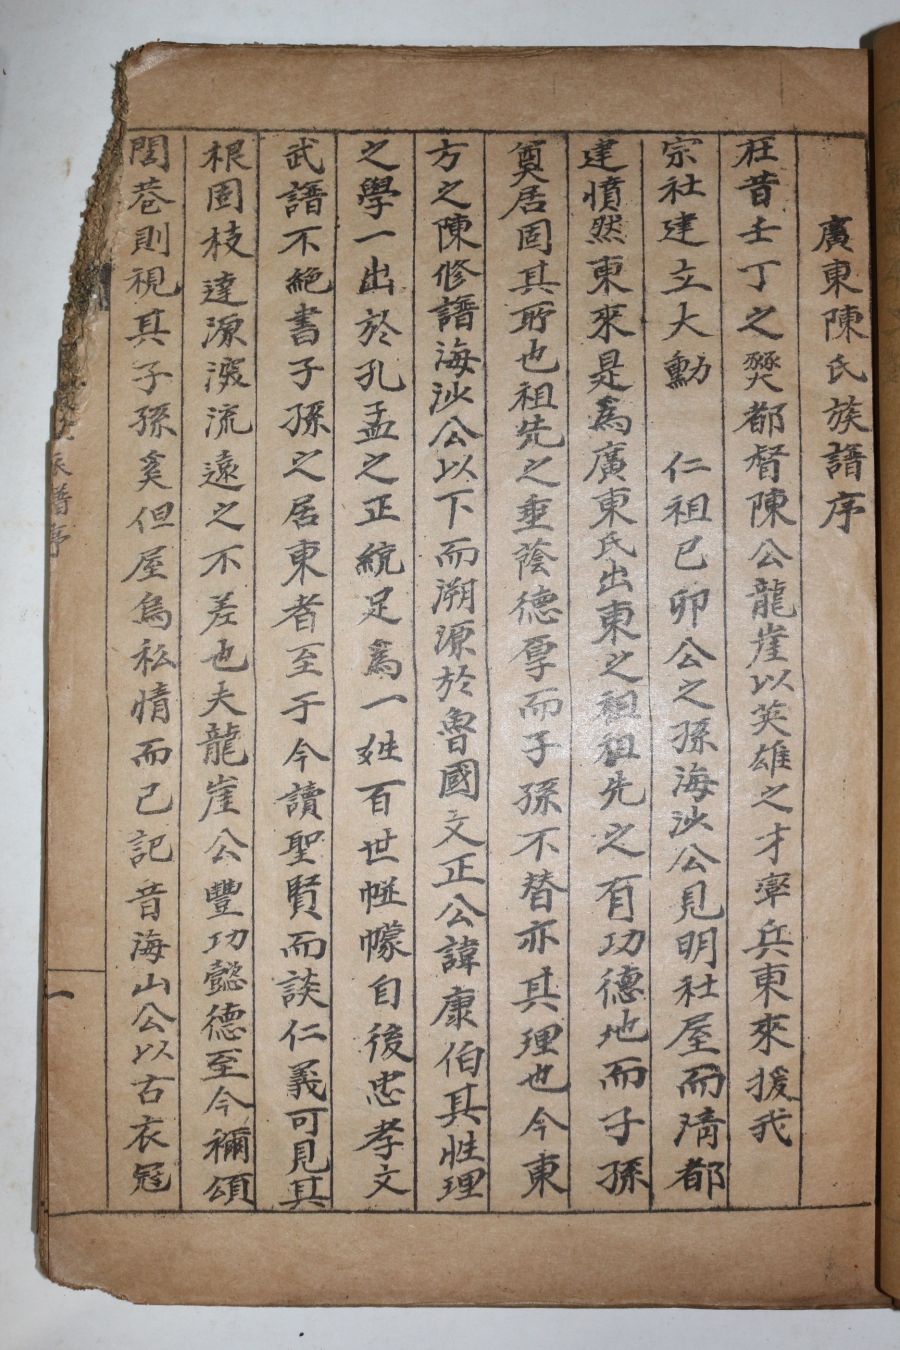 廣東陳氏族譜序
在昔壬丁之燹都督陳公龍崖以英雄之才率兵東來援我
宗社建立大勳 仁祖己卯公之孫海沙公見明社屋而隋都
建憤然東來是為廣東氏出東之祖祖先之有功德地而子孫
奠居固其所也祖先之垂蔭德厚而子孫不替亦其理也今東
方之陳修譜海沙公以下而溯源於魯國文正公諱康伯其性理
之學一出於孔孟之正統足為一姓百世帡幪自後忠孝文
武譜不絕書子孫之居東者至于今讀聖賢而談仁義可見其
根固枝達源深流遠之不差也夫龍崖公豐功懿德至今禰頌
閭巷則視其子孫奚但屋烏私情而已記昔海山公以古衣冠
族譜序
一